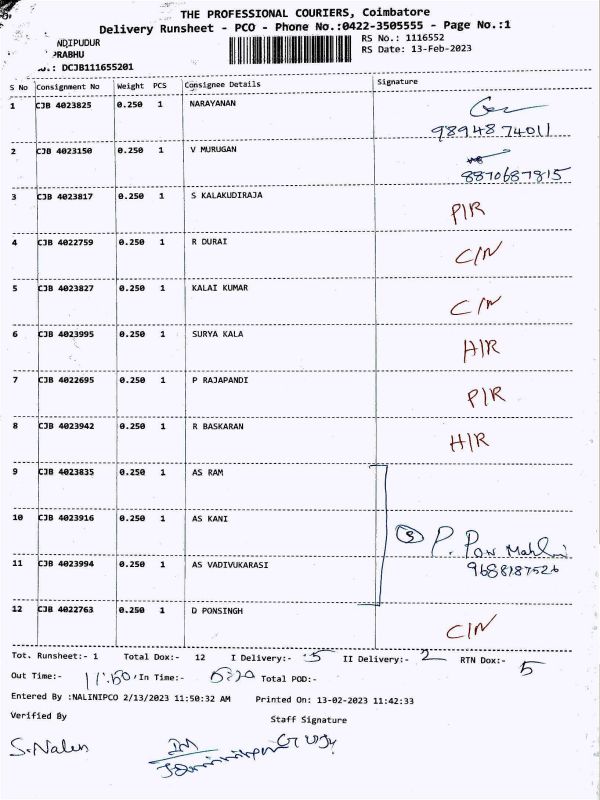 THE PROFESSIONAL COURIERS, Coimbatore
Delivery Runsheet - PCO - Phone No.:0422-3505555 - Page No.:1
NDIPUDUR
PRABHU
RS No.: 1116552
RS Date: 13-Feb-2023
.: DCJB111655201
S No Consignment No Weight PCS Consignee Details Signature
1 CJB 4023825 0.250 1 NARAYANAN
9894874011
2 CJB 4023150 0.250 1 V MURUGAN
8870687815
3 CJB 4023817 0.250 1 S KALAKUDIRAJA P/R
4 CJB 4022759 0.250 1 R DURAI C/N
5 CJB 4023827 0.250 1 KALAI KUMAR C/N
6 CJB 4023995 0.250 1 SURYA KALA H/R
7 CJB 4022695 0.250 1 P RAJAPANDI P/R
8 CJB 4023942 0.250 1 R BASKARAN H/R
9 CJB 4023835 0.250 1 AS RAM
10 CJB 4023916 0.250 1 AS KANI
3 P. Pon
11 CJB 4023994 0.250 1 AS VADIVUKARASI
9688187526
12 CJB 4022763 0.250 1 D PONSINGH C/N
Tot. Runsheet:- 1 Total Dox:- 12 I Delivery:- 5 II Delivery:- 2 RTN Dox:- 5
Out Time:- 11:50 In Time:- Total POD:-
Entered By :NALINIPCO 2/13/2023 11:50:32 AM Printed On: 13-02-2023 11:42:33
Verified By Staff Signature
S. Nalin